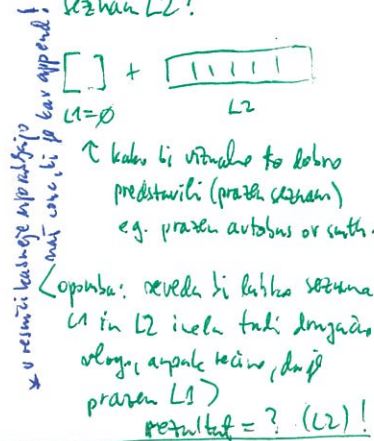 seznam L2?
[ ] + [ | | | | | ]
L1=∅ L2
↑ kako bi vizualno to dobro
predstavili (prazen seznam)
e.g. prazen avtobus or smth.
<opomba: seveda bi lahko seznama
L1 in L2 imela tudi drugačno
vlogo, ampak recimo, da je
prazen L1>
rezultat = ? (L2)!
* v resnici kasneje uporabljajo
naš conc, ki je kar append!